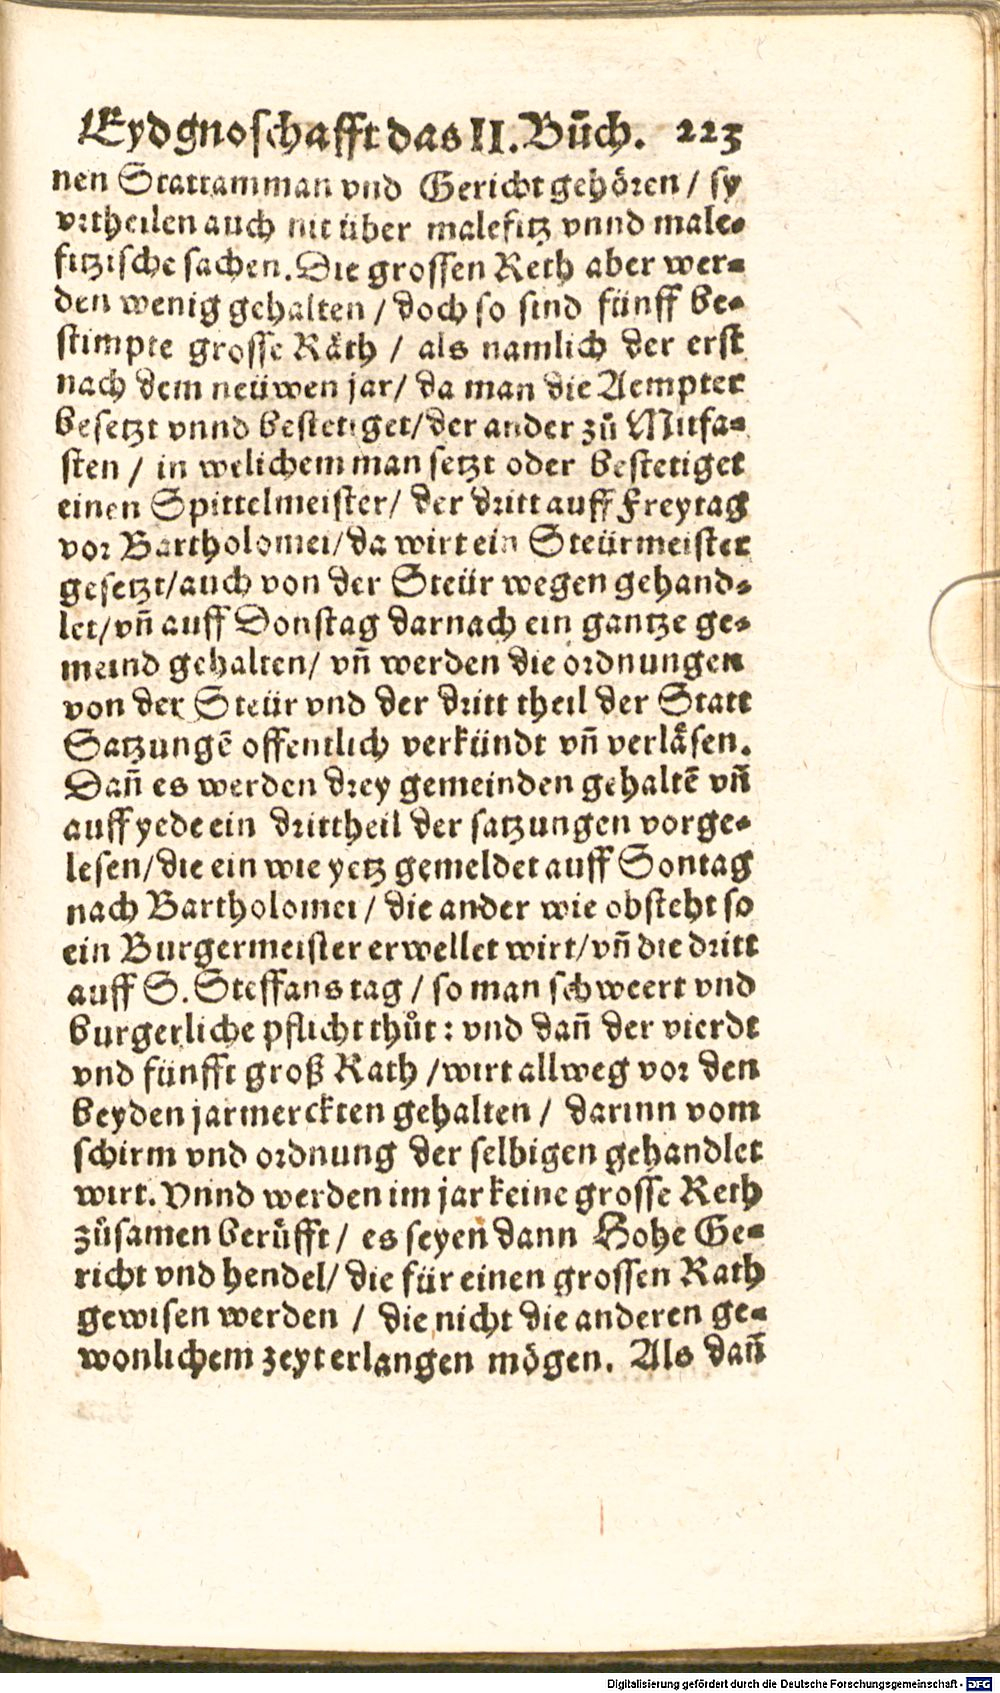 Eydgnoschafft das II. Bůch. 223
nen Stattamman vnd Gericht gehören / sy
vrtheilen auch nit über malefitz vnnd male-
fitzische sachen. Die grossen Reth aber wer-
den wenig gehalten / doch so sind fünff be-
stimpte grosse Räth / als namlich der erst
nach dem neüwen jar/ da man die Aempter
besetzt vnnd bestetiget/der ander zů Mitfa-
sten / in welichem man setzt oder bestetiget
einen Spittelmeister/ der dritt auff Freytag
vor Bartholomei/da wirt ein Steürmeister
gesetzt/auch von der Steür wegen gehand-
let/vñ auff Donstag darnach ein gantze ge-
meind gehalten/ vñ werden die ordnungen
von der Steür vnd der dritt theil der Statt
Satzungē offentlich verkündt vñ verläsen.
Dañ es werden drey gemeinden gehaltē vñ
auff yede ein drittheil der satzungen vorge-
lesen/die ein wie yetz gemeldet auff Sontag
nach Bartholomei / die ander wie obsteht so
ein Burgermeister erwellet wirt/vñ die dritt
auff S. Steffans tag / so man schweert vnd
burgerliche pflicht thůt: vnd dañ der vierdt
vnd fünfft groß Rath /wirt allweg vor den
beyden jarmerckten gehalten / darinn vom
schirm vnd ordnung der selbigen gehandlet
wirt. Vnnd werden im jar keine grosse Reth
zůsamen berüfft / es seyen dann Hohe Ge-
richt vnd hendel/ die für einen grossen Rath
gewisen werden / die nicht die anderen ge-
wonlichem zeyt erlangen mögen. Als dañ
Digitalisierung gefördert durch die Deutsche Forschungsgemeinschaft - DFG